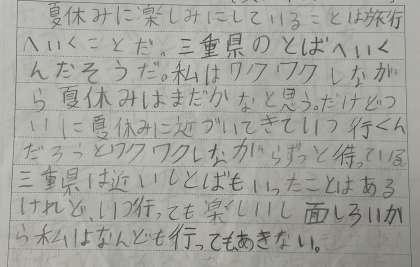 夏休みに楽しみにしていることは旅行
へいくことだ。三重県のとばへいく
んだそうだ。私はワクワクしなが
ら夏休みはまだかなと思う。だけどつ
いに夏休みに近づいてきていつ行くん
だろうとワクワクしながらずっと待っている
三重県は近いしとばもいったことはある
けれど、いつ行っても楽しいし面しろいか
ら私はなんども行ってもあきない。